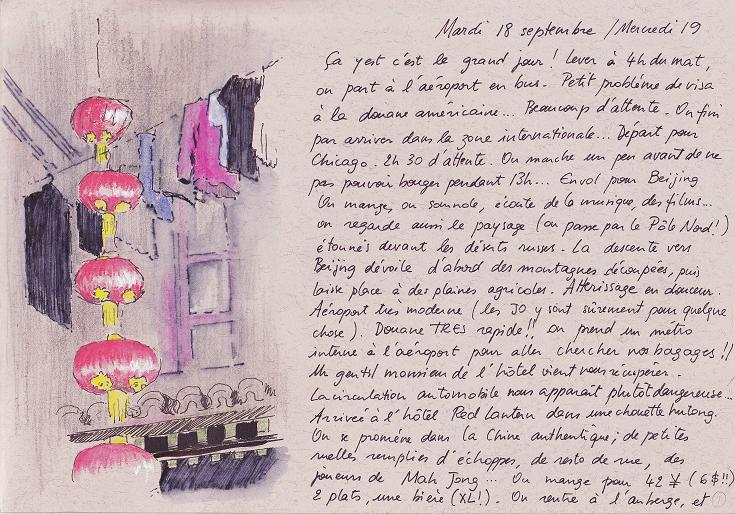 Mardi 18 septembre / Mercredi 19
Ça y est c'est le grand jour ! lever à 4h du mat,
on part à l'aéroport en bus. Petit problème de visa
à la douane américaine... Beaucoup d'attente. On fini
par arriver dans la zone internationale... Départ pour
Chicago. 2h30 d'attente. On marche un peu avant de ne
pas pouvoir bouger pendant 13h... Envol pour Beijing
On mange, on somnole, écoute de la musique, des films...
on regarde aussi le paysage (on passe par le Pôle Nord !)
étonnés devant les déserts russes. La descente vers
Beijing dévoile d'abord des montagnes découpées, puis
laisse place à des plaines agricoles. Atterissage en douceur.
Aéroport très moderne (les JO y sont sûrement pour quelque
chose). Douane TRES rapide !! on prend un métro
interne à l'aéroport pour aller chercher nos bagages !!
Un gentil monsieur de l'hôtel vient nous récupérer.
La circulation automobile nous apparaît plutôt dangereuse...
Arrivée à l'hôtel Red Lantern dans une chouette hutong.
On se promène dans la Chine authentique ; de petites
ruelles remplies d'échoppes, de resto de rue, des
joueurs de Mah Jong... On mange pour 42 ¥ (6$ !!)
2 plats, une bière (XL!). On rentre à l'auberge, et 1